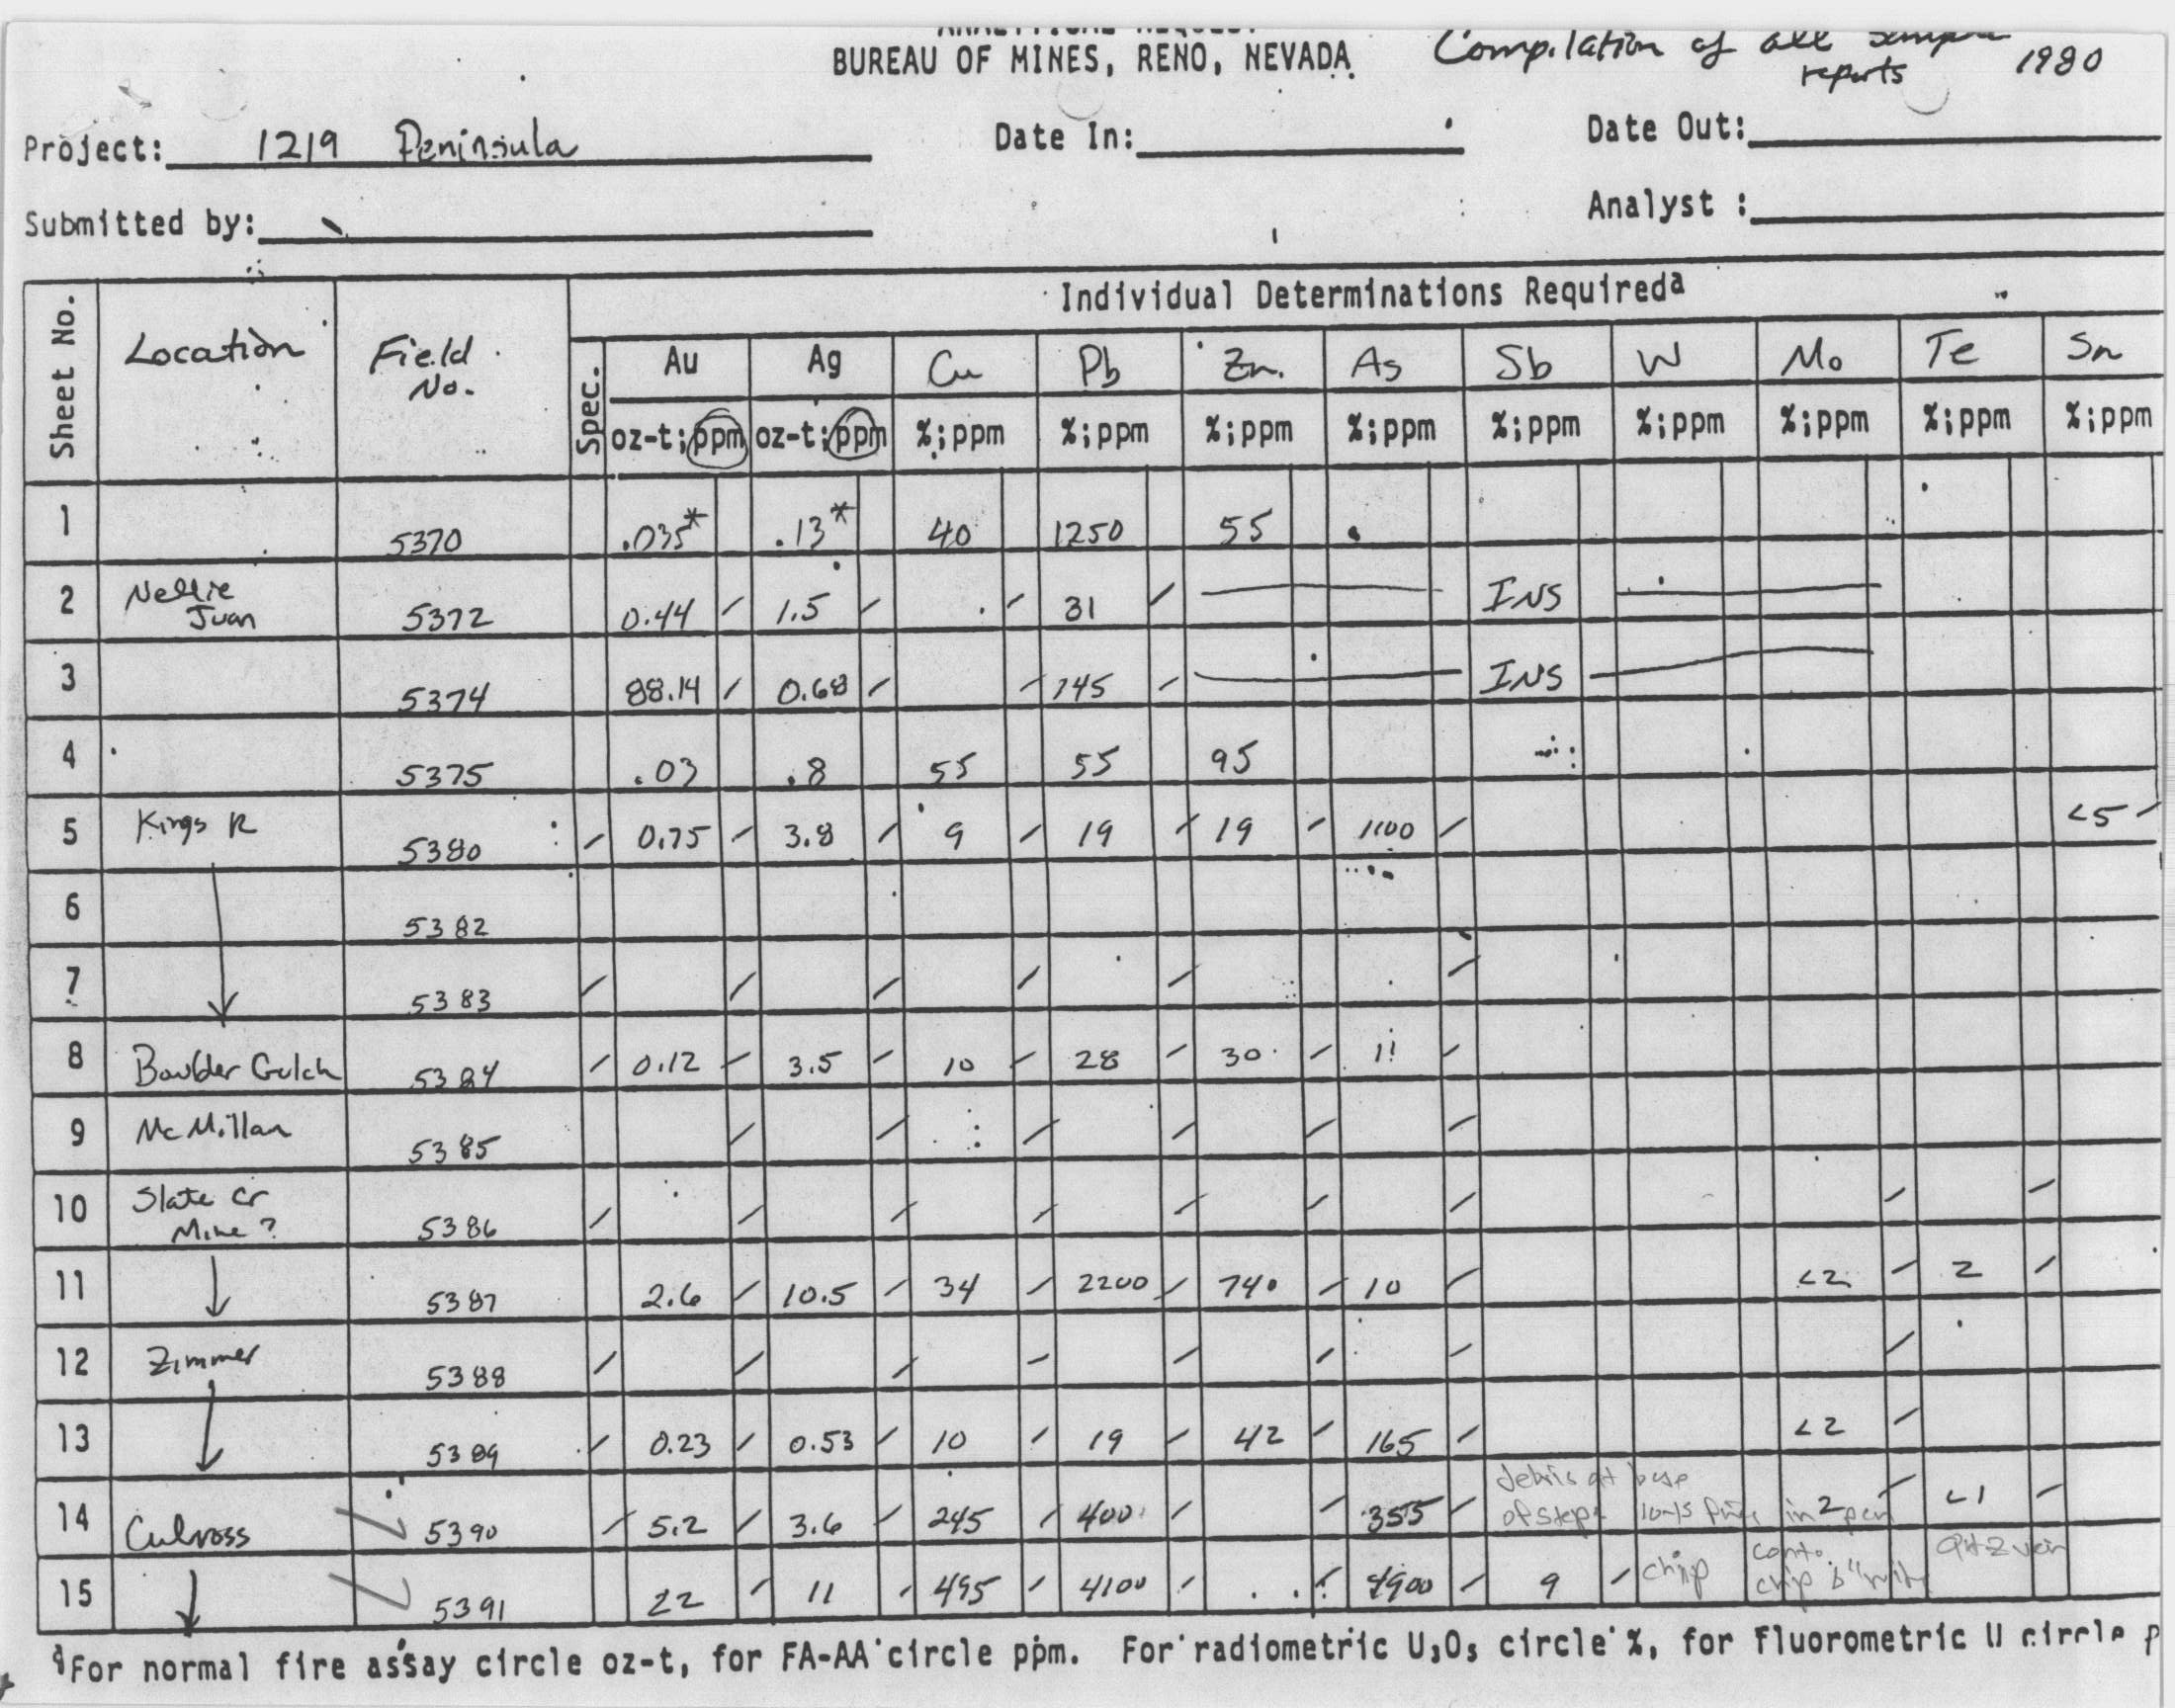 BUREAU OF MINES, RENO, NEVADA
Compilation of all
reports 1980
Project: 1219 Peninsula
Date In:
Date Out:
Submitted by:
Analyst :
Individual Determinations Required a
Sheet No. Location Field No. Spec. Au Ag Cu Pb Zn. As Sb W Mo Te Sn
oz-t;ppm oz-t;ppm %;ppm %;ppm %;ppm %;ppm %;ppm %;ppm %;ppm %;ppm %;ppm
1 5370 .035* .13* 40 1250 55
2 Nellie Juan 5372 0.44 / 1.5 / / 31 / INS
3 5374 88.14 / 0.68 / / 145 / INS
4 5375 .03 .8 55 55 95
5 Kings R 5380 / 0.75 / 3.8 / 9 / 19 / 19 / 1100 / <5 /
6 5382
7 5383 / / / / / /
8 Boulder Gulch 5384 / 0.12 / 3.5 / 10 / 28 / 30 / 11 /
9 McMillan 5385 / / / / / /
10 Slate Cr Mine? 5386 / / / / / / / / /
11 5387 2.6 / 10.5 / 34 / 2200 / 740 / 10 / <2 / 2 /
12 Zimmer 5388 / / / / / / / /
13 5389 / 0.23 / 0.53 / 10 / 19 / 42 / 165 / <2 /
14 Culross 5390 / 5.2 / 3.6 / 245 / 400 / / 355 / debris at base of steps in 2 pan / <1 /
15 5391 22 / 11 / 495 / 4100 / / 7900 / 9 / chip chip qtz vein
aFor normal fire assay circle oz-t, for FA-AA circle ppm. For radiometric U3O8 circle %, for fluorometric U circle p